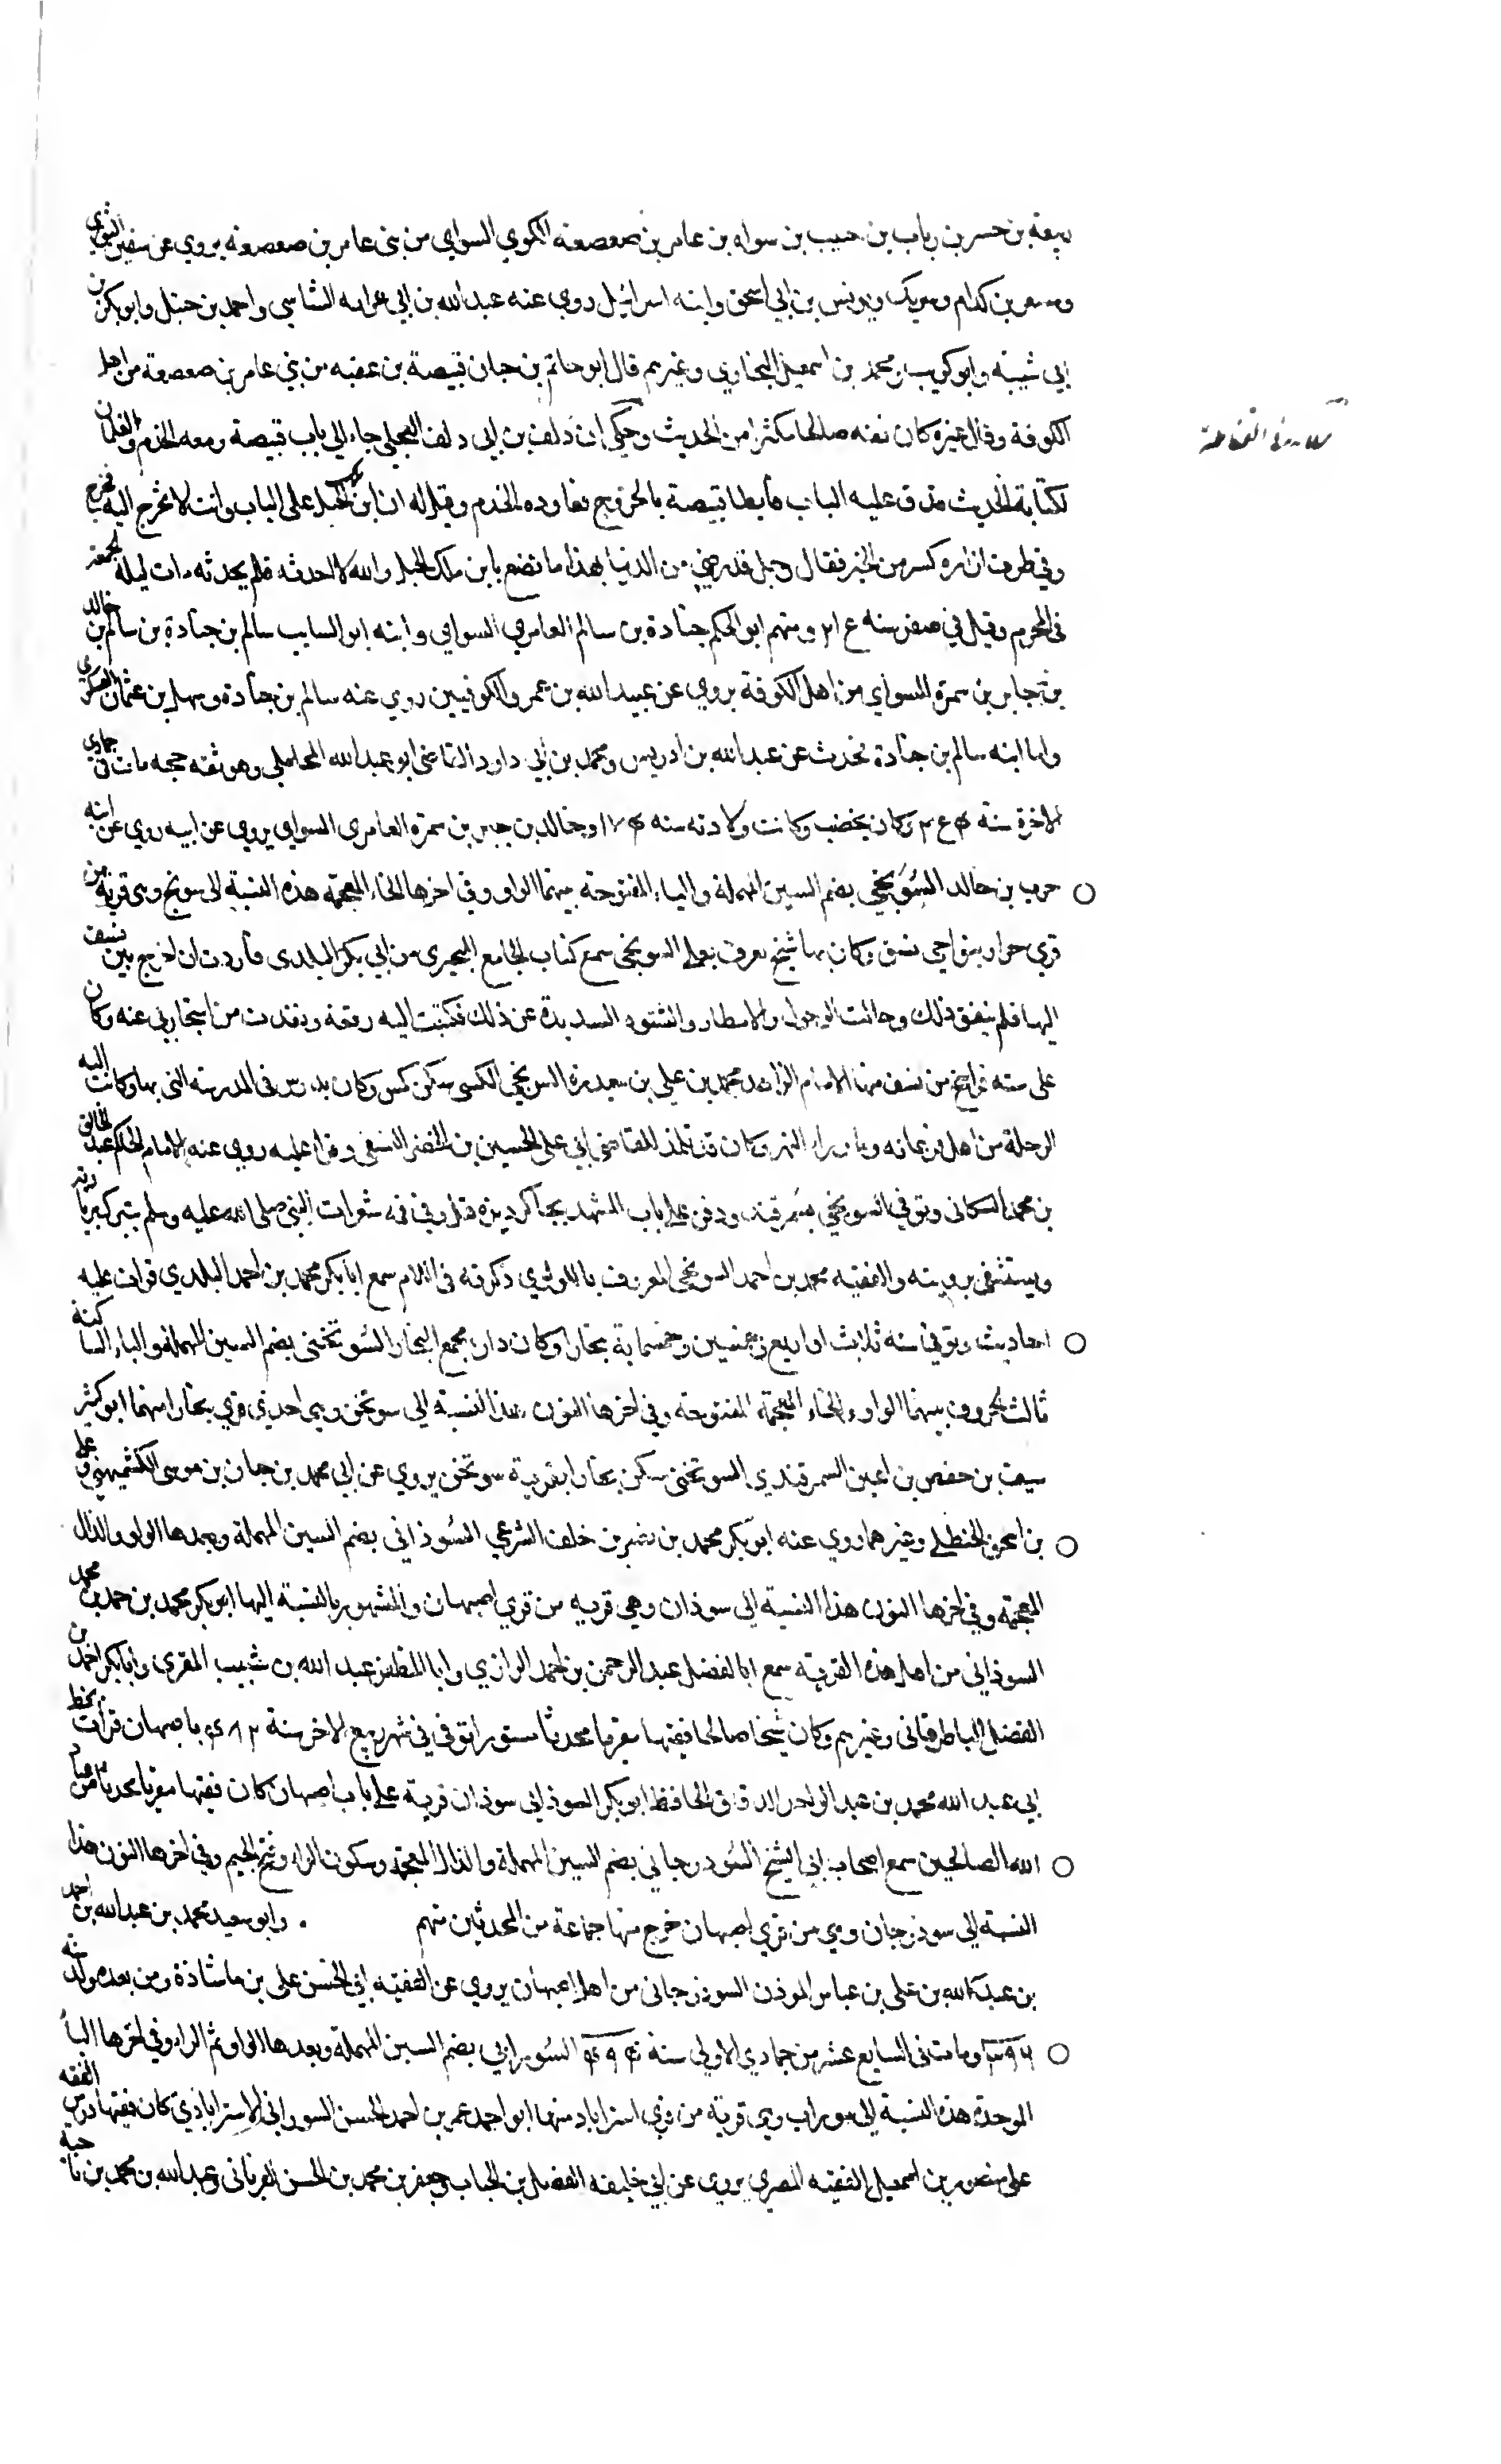 ربيعة بن حسر بن رياب بن حبيب بن سواه بن عامر بن صعصعه الكوفي السوايي من بني عامر بن صعصعه يروي عن سفين الثوري
ومسعر بن كدام وشريك ويونس بن ابي اسحق وابنه اسرائيل روي عنه عبد الله بن ابي عرابه الشاسي واحمد بن حنبل وابو بكر بن
ابي شيبة وابو كريب ومحمد بن اسمعيل البخاري وغيرهم قال ابو حاتم بن حبان قبيصة بن عقبه من بني عامر بن صعصعة من اهل
الكوفة وقال غيره كان ثقه صالحا مكثرا من الحديث وحكي ان دلف بن ابي دلف العجلي جاء الي باب قبيصة ومعه الخدم والغلمان
لكتابة الحديث فدق عليه الباب فابطا قبيصة بالخروج فعاوده الخدم وقيل له ان ابن ملك الجبل علي الباب وانت لا تخرج اليه فخرج
وفي طرف ازاره كسر من الخبز فقال رجل قد رضي من الدنيا بهذا ما يصنع بابن ملك الجبل والله لا احدثه فلم يحدثه مات ليلة الجمعة
في المحرم وقيل في صفر سنه ٢١٤ ومنهم ابو الحكم جنادة بن سالم العامري السوايي وابنه ابو السايب سالم بن جنادة بن سالم بن خالد
بن جابر بن سمرة السوايي من اهل الكوفة يروي عن عبيد الله بن عمر والكوفيين روي عنه سالم بن جنادة وسهل بن عثمان العسكري
واما ابنه سالم بن جنادة يحدث عن عبد الله بن ادريس ومحمد بن ابي داود القاضي ابو عبد الله المحاملي وهو ثقه حجه مات في جمادي
الاخرة سنة ٢٥٤ وكان يخضب وكانت ولادته سنه ١٧٤ وخالد بن جبر بن سمرة العامري السوايي يروي عن ابيه روي عن ابنه
حرب بن خالد السوبخي بضم السين المهملة والباء المفتوحة بينهما الواو وفي اخرها الخاء المعجمة هذه النسبة الي سوبخ وهي قرية من
قري خزار بنواحي نسف وكان بها شيخ يعرف بعلي السوبخي سمع كتاب الجامع البجيري من ابي بكر البلدي فاردت ان اخرج بين نسف
اليها فلم يتفق ذلك وحالت الوحول والامطار والشتوه الشديدة عن ذلك فكتبت اليه رقعة ونفذت من استجازلي عنه وكان
علي سته فراسخ من نسف منها الامام الزاهد محمد بن علي بن سعيدره السوبخي الكسي سكن كس وكان يدرس في المدرسه التي بها وكانت اليه
الرحلة من اهل فرغانه وما وراء النهر وكان قد تلمذ للقاضي ابي علي الحسين بن الخضر النسفي وقرا عليه روي عنه الامام الحاكم عبد الخالق
بن محمد السكاني وتوفي السوبخي بسمرقند ودفن علي باب المشهد بجاكرديزه قال وفي فه شعرات النبي صلي الله عليه وسلم يتبرك بزيارته
ويستشفي برويته والفقيه محمد بن احمد السوبخي المعروف باللولوي ذكرته في اللام سمع ابا بكر محمد بن احمد البلدي قرات عليه
احاديث وتوفي سنه ثلاث او اربع وخمسين وخمسماية ببخارا وكان داره مجمع التجار السوتخني بضم السين المهملة والتاء الساكنة
ثالث الحروف بينهما الواو والخاء المعجمة المفتوحة وفي اخرها النون هذا النسبة الي سوتخن وهي احدي قري بخارا منها ابو كثير
سيف بن حفص بن اعين السمرقندي السوتخني سكن بخارا بقرية سوتخن يروي عن ابي محمد بن حبان بن موسي الكشميهني وعلي
بن اسحق الحنظلي وغيرهما روي عنه ابو بكر محمد بن نصر بن خلف الشرعي السوذاني بضم السين المهملة وبعدها الواو والذال
المعجمة وفي اخرها النون هذا النسبة الي سوذان وهي قريه من قري اصبهان والمشهور بالنسبة اليها ابو بكر محمد بن حمد بن محمد
السوذاني من اهل هذه القرية سمع ابا الفضل عبد الرحمن بن احمد الرازي وابا المظفر عبد الله بن شبيب المقري وابا بكر احمد بن
الفضل الباطرقاني وغيرهم وكان شيخا صالحا فقيها مقريا محدثا مستورا توفي في شهر ربيع الاخر سنة باصبهان قرات بخط
ابي عبد الله محمد بن عبد الواحد الدقاق الحافظ ابو بكر السوذاني سوذان قرية علي باب اصبهان كان فقيها مقريا محدثا من عباد
الله الصالحين سمع اصحاب ابي الشيخ السوذرجاني بضم السين المهملة والذال المعجمة وسكون الراء وفتح الجيم وفي اخرها النون هذا
النسبة الي سوذرجان وهي من قري اصبهان خرج منها جماعة من المحدثين منهم وابو سعيد محمد بن عبد الله بن احمد
بن عبد الله بن علي بن عباس الموذن السوذرجاني من اهل اصبهان يروي عن الفقيه ابي الحسن علي بن ماشاذة ومن بعده مولده سنه
ومات في السابع عشر من جمادي الاولي سنة السورابي بضم السين المهملة وبعدها الواو ثم الراء وفي اخرها الباء
الموحدة هذه النسبة الي سوراب وهي قرية من قري استراباد منها ابو احمد عمر بن احمد الحسن السورابي الاستراباذي كان فقيها درس الفقه
علي منصور بن اسمعيل الفقيه المصري يروي عن ابي خليفه الفضل بن الحباب وجعفر بن محمد بن الحسن الفريابي وعبد الله بن محمد بن ناجية